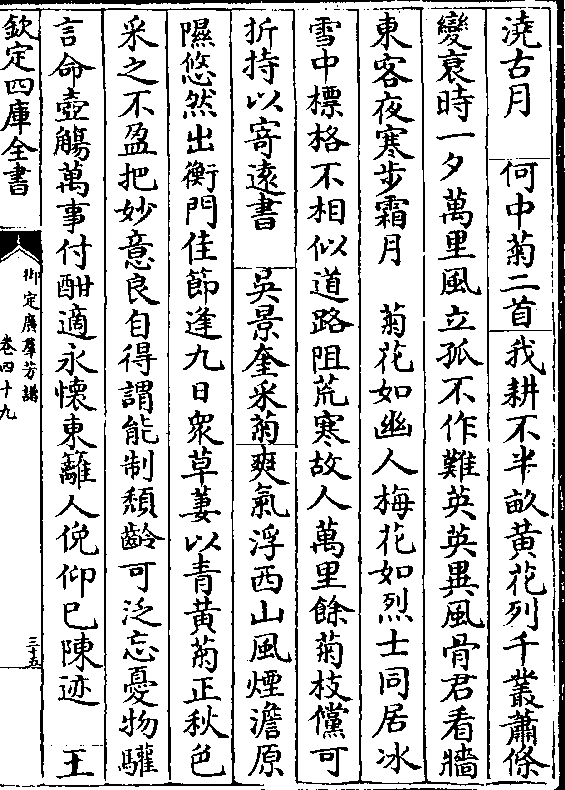 澆古月　何中菊二首我耕不半畝黄花列千叢蕭條
變衰時一夕萬里風立孤不作難英英異風骨君看牆
東客夜寒步霜月　菊花如幽人梅花如烈士同居冰
雪中標格不相似道路阻荒寒故人萬里餘菊枝儻可
折持以寄遠書　吳景奎采菊爽氣浮西山風煙澹原
隰悠然出衡門佳節逢九日衆草萋以青黄菊正秋色
采之不盈把妙意良自得謂能制頽齡可泛忘憂物驩
言命壺觴萬事付酣適永懷東籬人俛仰已陳迹　王
欽定四庫全書
御定廣羣芳譜
卷四十九
三十五